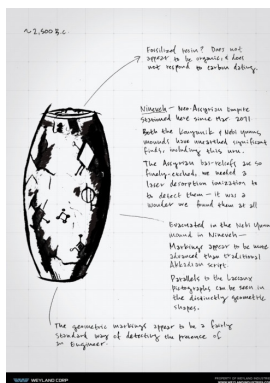 ~2,500 B.C
Fossilized resin? Does not
appear to be organic, & does
not respond to carbon dating.
Nineveh - Neo-Assyrian Empire
Stationed here since Mar. 2071
Both the Kouyunjik & Nebi Yunus
mounds have unearthed significant
finds, including this urn.
The Assyrian bas-reliefs are so
finely-etched, we needed a
laser desorption ionization to
detect them - it was a
wonder we found them at all
Excavated in the Nebi Yunus
mound in Nineveh -
Markings appear to be more
advanced than traditional
Akkadian script.
Parallels to the Lascaux
Pictographs can be seen in
the distinctly geometric
shapes.
The geometric markings appear to be a fairly
standard way of detecting the presence of
an Engineer
WEYLAND CORP
PROPERTY OF WEYLAND INDUSTRIES